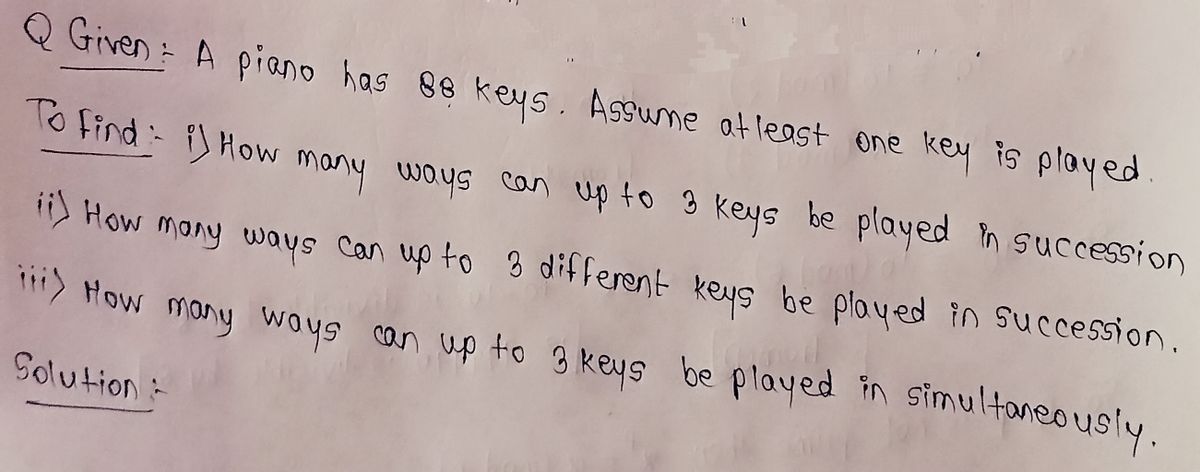 Q Given :- A piano has 88 keys. Assume atleast one key is played.
To find :- i) How many ways can up to 3 keys be played in succession
ii) How many ways can up to 3 different keys be played in succession.
iii) How many ways can up to 3 keys be played in simultaneously.
Solution :-